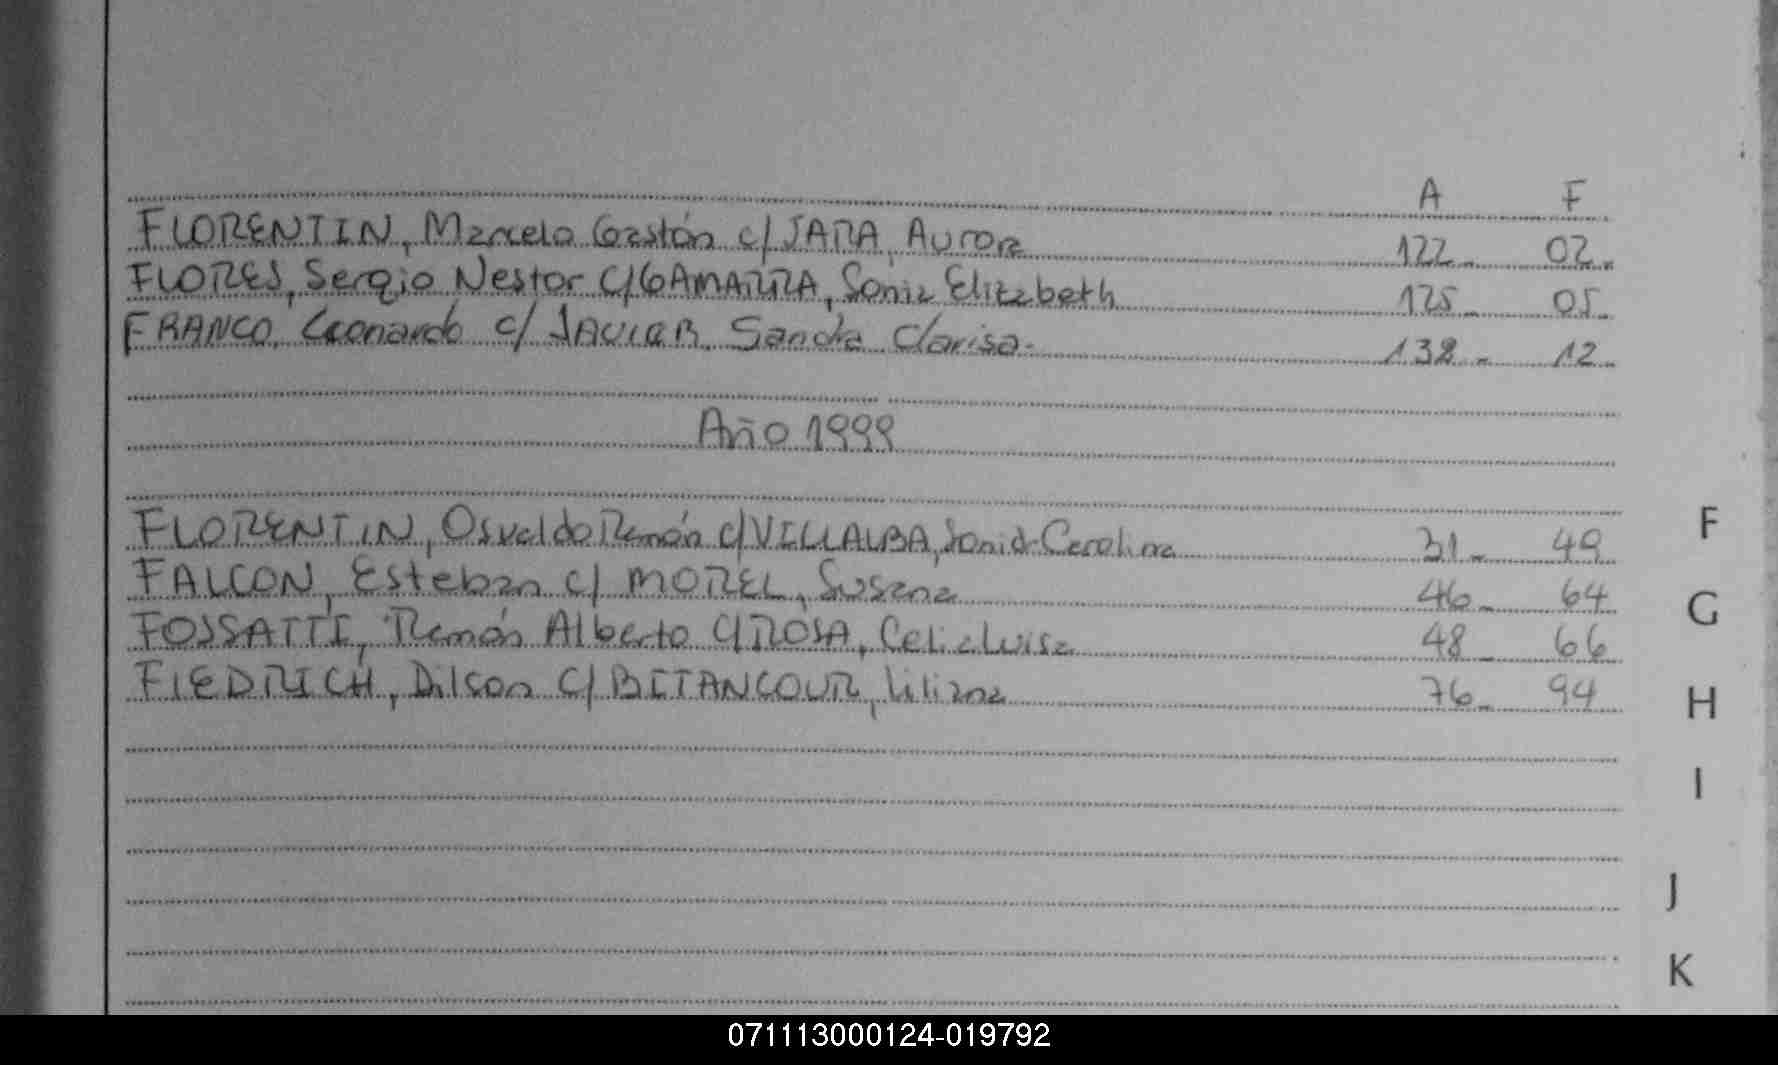 A F
FLORENTIN, Marcelo Gastón c/ JARA, Aurora 122- 02-
FLORES, Sergio Nestor c/ GAMARRA, Sonia Elizabeth 125- 05-
FRANCO, Leonardo c/ JAVIER, Sandra Clarisa- 132- 12-
Año 1999
FLORENTIN, Osvaldo Ramón c/ VILLALBA, Sonia Carolina 31- 49
FALCON, Esteban c/ MOREL, Susana 46- 64
FOSSATTI, Ramón Alberto c/ ROSA, Celia Luisa 48- 66
FIEDRICH, Dilson c/ BETANCOUR, Liliana 76- 94
F
G
H
I
J
K
071113000124-019792